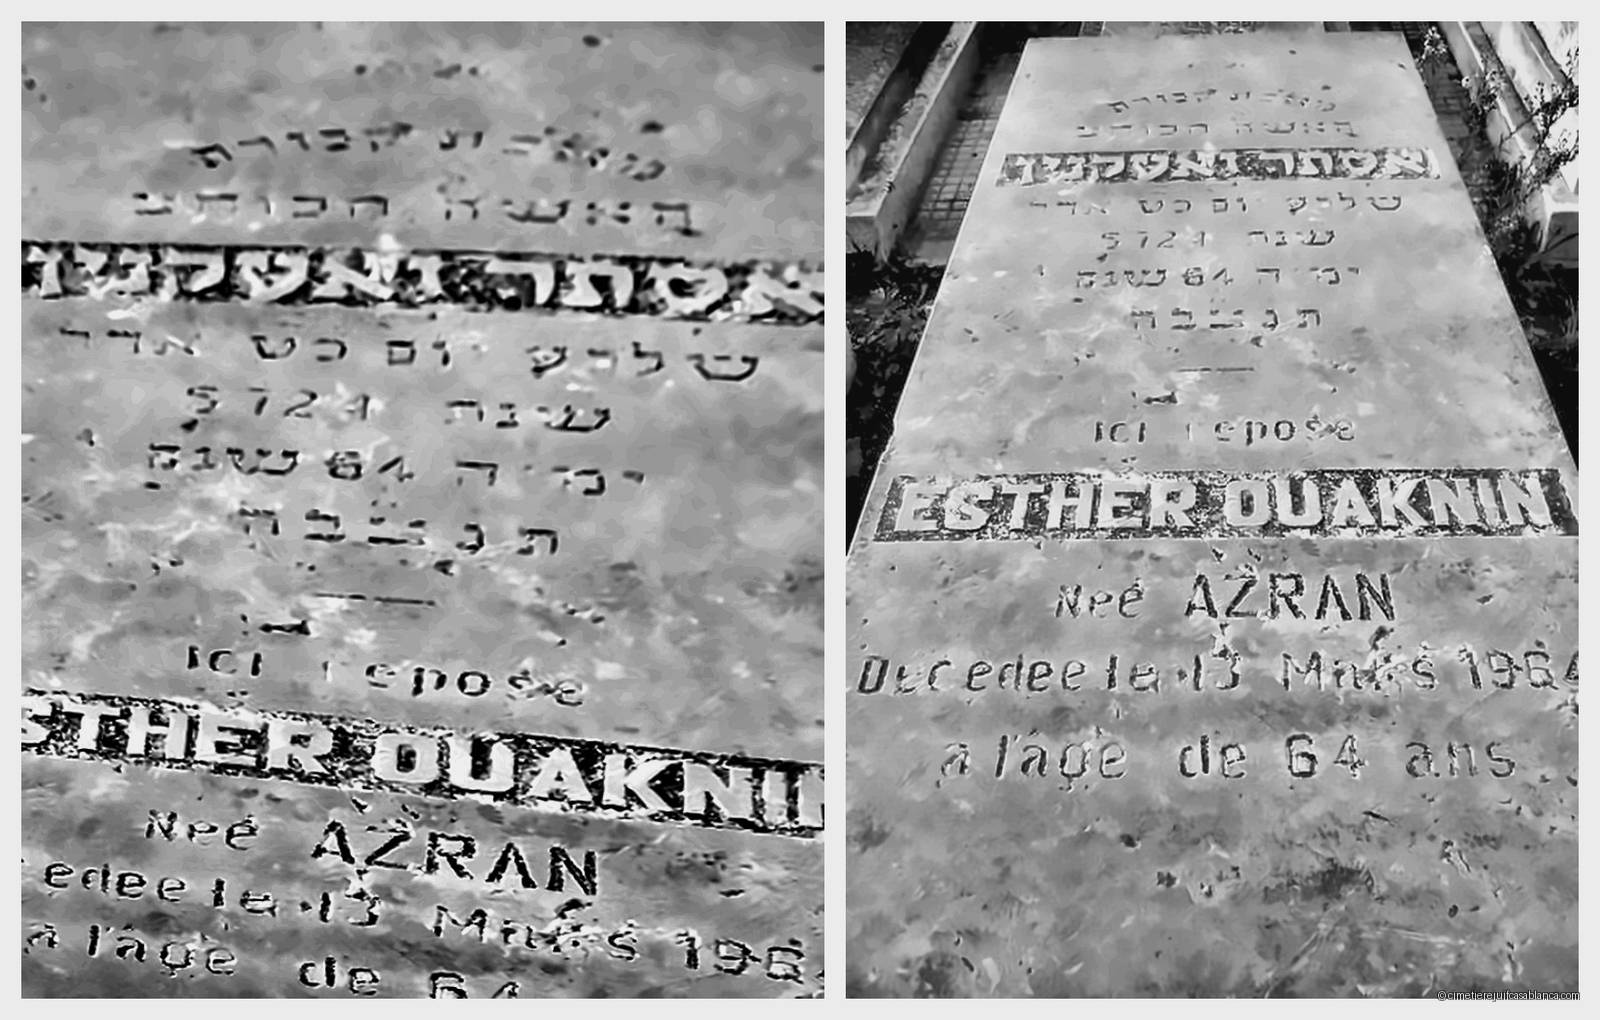 מצבת קבורת
האשה
אסתר ואעקנין
שלבע יום כט אדר
שנת 5724
ימיה 64 שנים
תנצבה
Ici repose
STHER OUAKNIN
Neé AZRAN
edee le 13 Mars 196
a l'âge de 64
מצבת קבורת
האשה
אסתר ואעקנין
שלבע יום כט אדר
שנת 5724
ימיה 64 שנים
תנצבה
Ici repose
ESTHER OUAKNIN
Neé AZRAN
Decedee le 13 Mars 1964
a l'âge de 64 ans
©cimetierejuifcasablanca.com